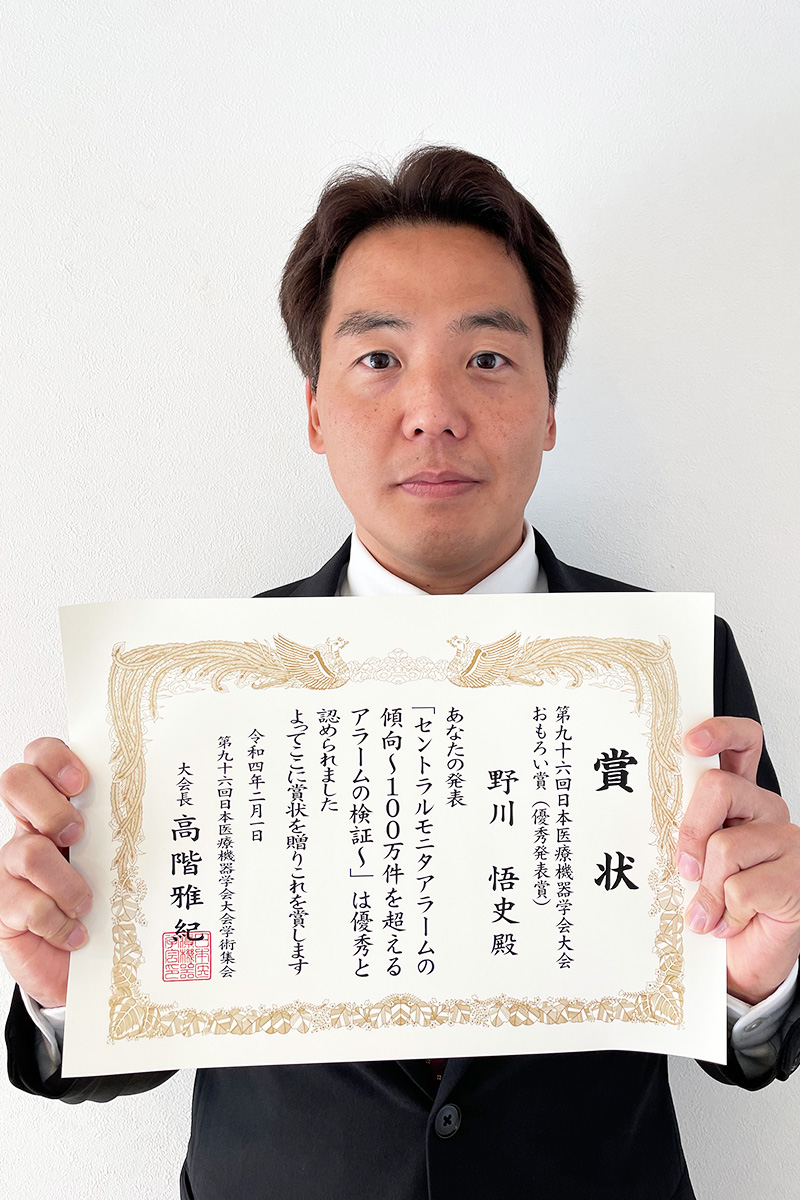 賞状
第九十六回日本医療機器学会大会
おもろい賞（優秀発表賞）
野川 悟史 殿
あなたの発表
「セントラルモニタアラームの
傾向～100万件を超える
アラームの検証～」は優秀と
認められました
よってここに賞状を贈りこれを賞します
令和四年二月一日
第九十六回日本医療機器学会大会学術集会
大会長 高階雅紀